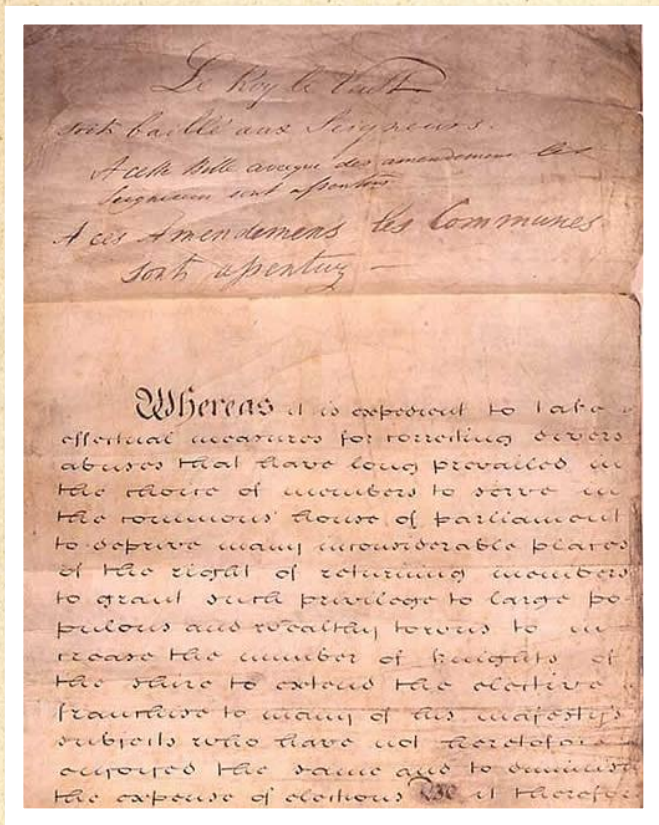 Le Roy le Veult
soit baillé aux Seigneurs.
A cette Bille avecque des amendemens les
Seigneurs sont assentus
A ces Amendemens les Communes
sont assentuz
Whereas it is expedient to take
effectual measures for correcting divers
abuses that have long prevailed in
the choice of members to serve in
the commons house of parliament
to deprive many inconsiderable places
of the right of returning members
to grant such privilege to large po
pulous and wealthy towns to in
crease the number of knights of
the shire to extend the elective
franchise to many of his majesty's
subjects who have not heretofore
enjoyed the same and to diminish
the expense of elections Be it therefor